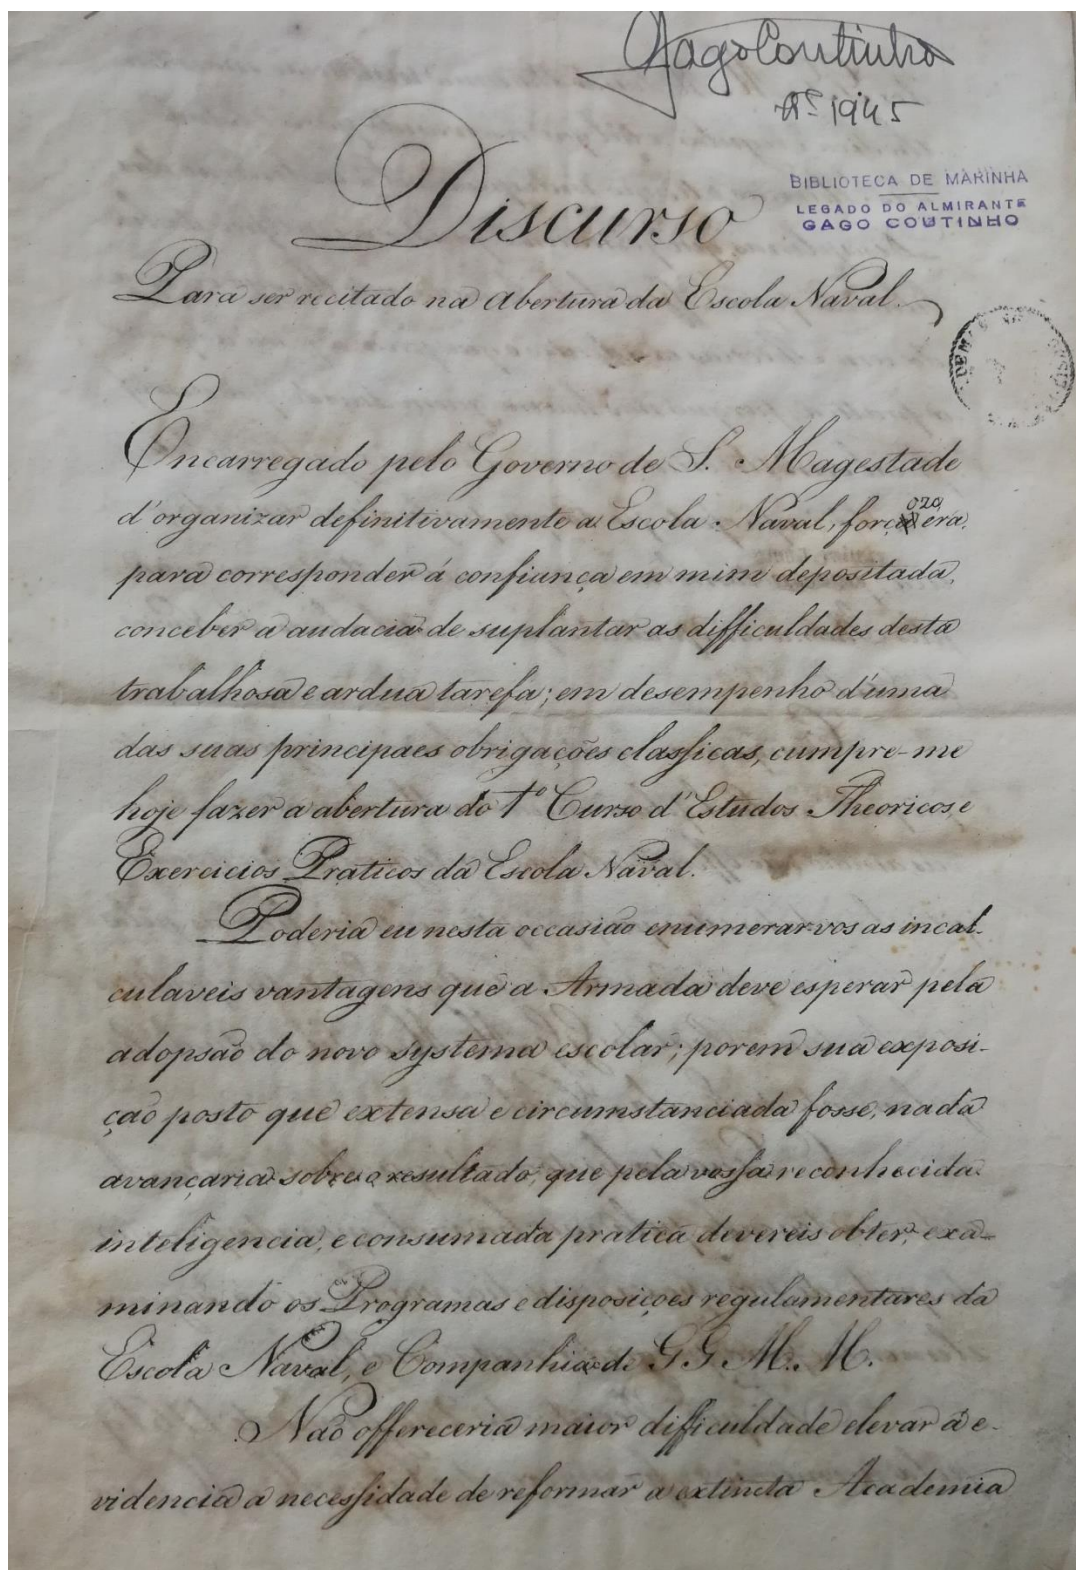 Gago Coutinho
1945
BIBLIOTECA DE MARINHA
LEGADO DO ALMIRANTE
GAGO COUTINHO
Discurso
Para ser recitado na abertura da Escola Naval.
Encarregado pelo Governo de S. Magestade
d'organizar definitivamente a Escola Naval, forçozo era,
para corresponder á confiança em mim depositada,
conceber a audacia de suplantar as difficuldades desta
trabalhosa e ardua tarefa; em desempenho d'uma
das suas principaes obrigações classicas, cumpre-me
hoje fazer a abertura do 1º Curso d'Estudos Theoricos, e
Exercicios Praticos da Escola Naval.
Poderia eu nesta occasião enumerar-vos as incal-
culaveis vantagens que a Armada deve esperar pela
adopsão do novo systema escolar; porem sua exposi-
ção posto que extensa e circumstanciada fosse, nada
avançaria sobre o resultado, que pela vossa reconhecida
inteligencia, e consumada pratica devereis obter, exa-
minando os Programas e disposições regulamentares da
Escola Naval, e Companhia de G G. M. M.
Não offereceria maior difficuldade elevar á e-
videncia a necessidade de reformar a extincta Academia